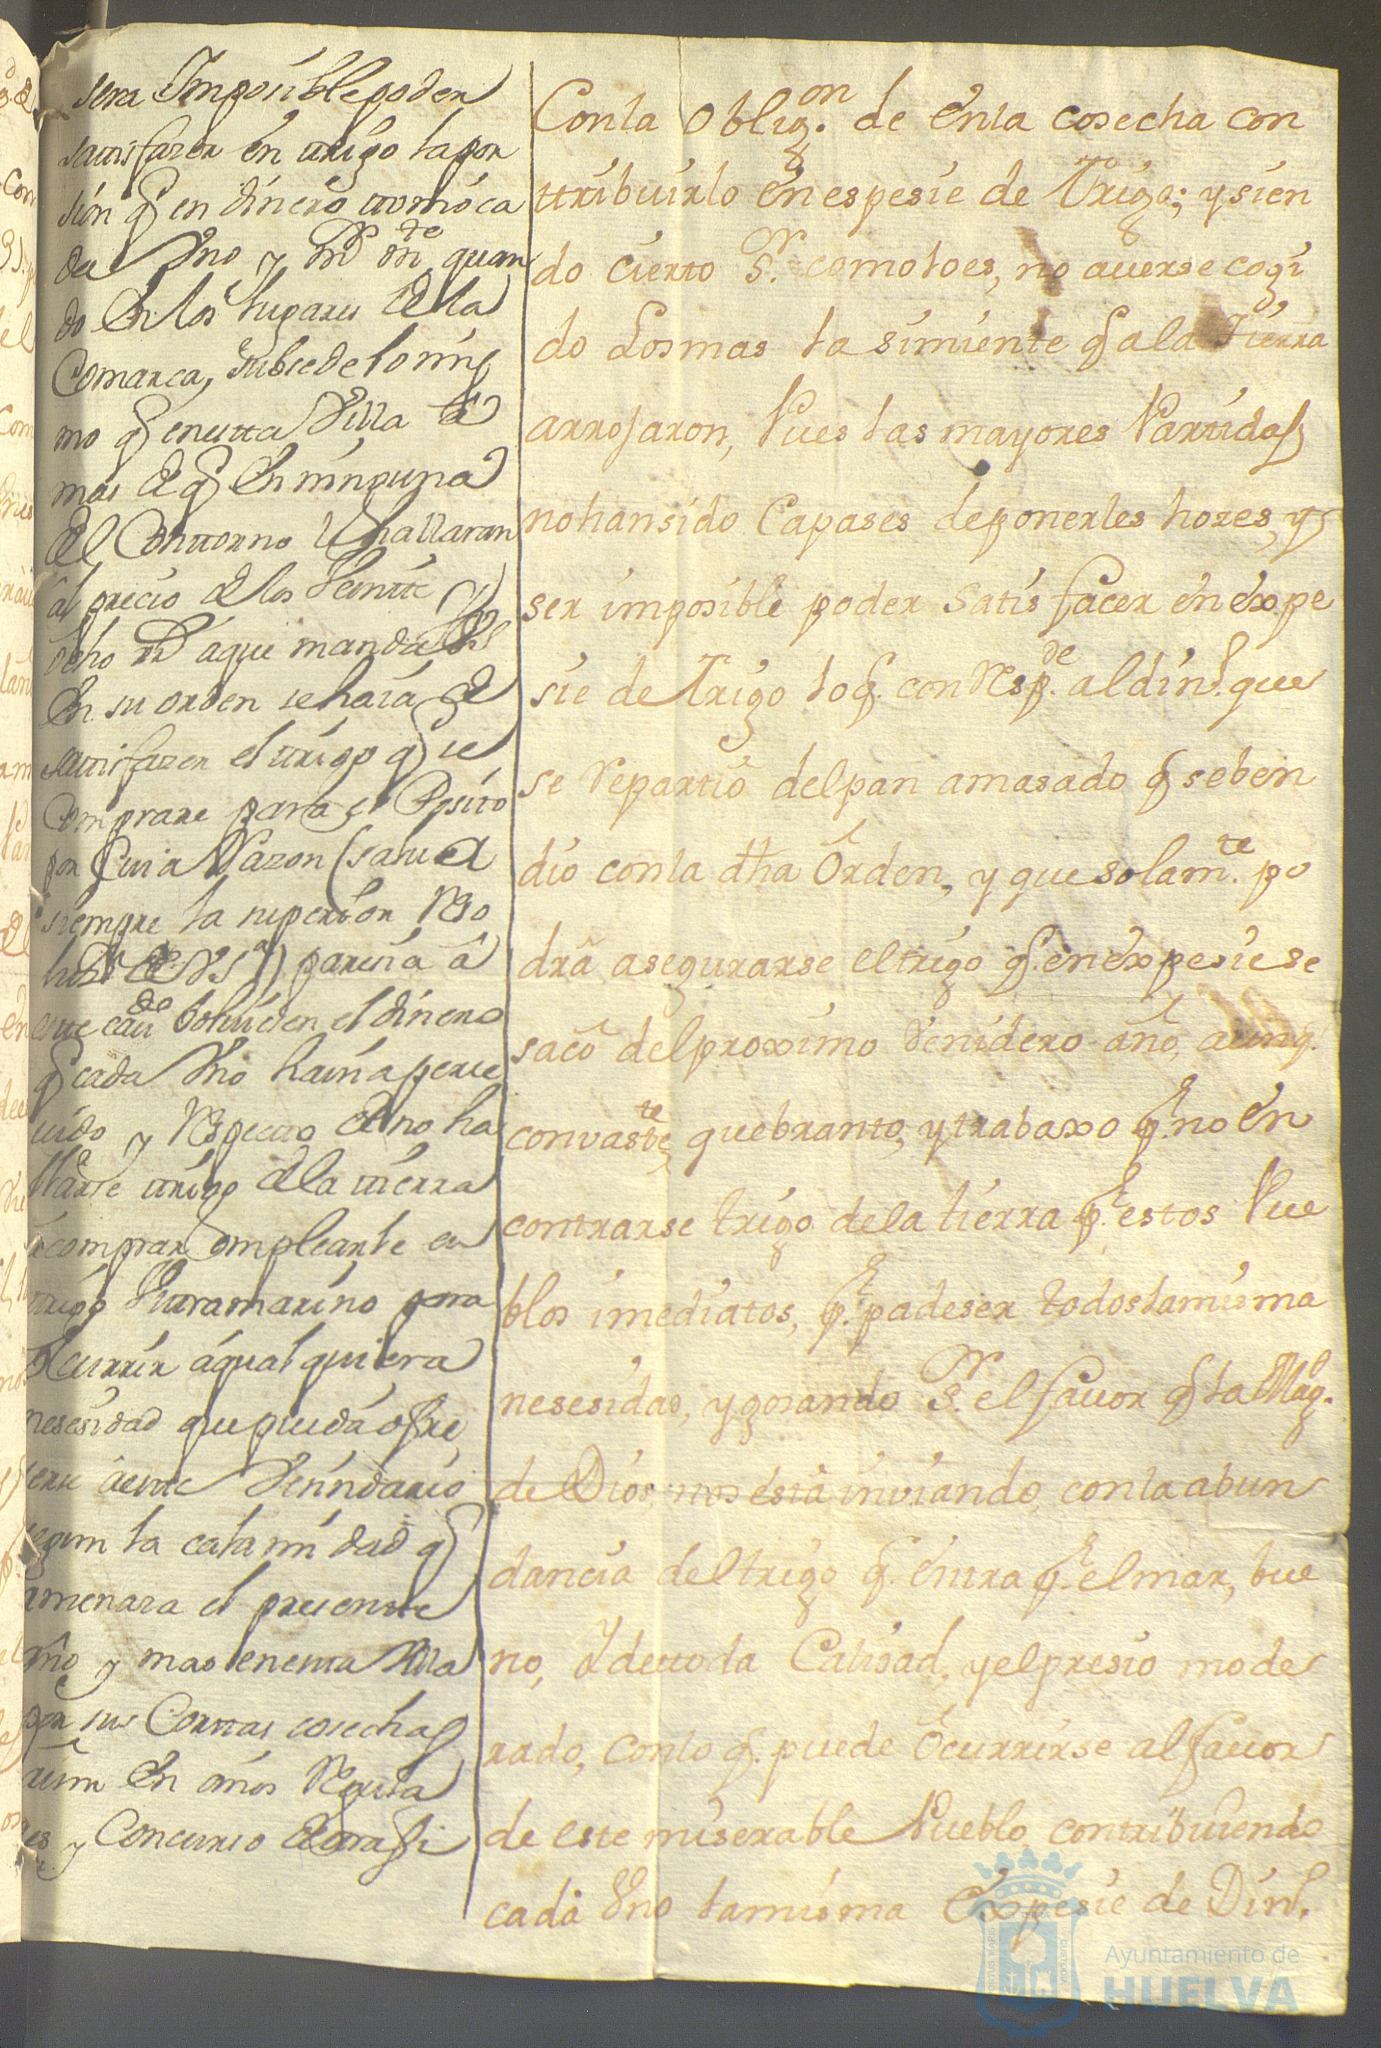 sera Imposible poder
satisfazer en trigo la por
sion q en dinero tomó ca
da Vno y
do En los lugares de la
Comarca, subsede lo mis
mo q en esta Villa
mas de q En ninguna
del Contorno le hallaran
al precio de los Veinte y
ocho rs aque manda
En su orden se haia de
satisfazer el trigo q se
comprare para el Posito
por Cuia Razon (salua
siempre la superior
) paresia a
este bolviesen el dinero
q cada Vno hauia perse
uido y Respecto de no ha
llarse trigo de la tierra
comprar emplearle en
trigo Vltramarino para
Ocurrir á qualquiera
nesesidad que pueda ofre
serse á este Vesindario
segun la calamidad q
amenaza el presente
año y mas en esta Villa
por sus Cortas cosechas
aun En años
y Concurso
Con la Oblig.on de en la cosecha con
ttribuirlo en espesie de Trigo; y sien
do cierto S.r como lo es, no auerse cogi
do Los mas la simiente q a la Tierra
arrojaron, Pues las mayores Partidas
no han sido Capases de ponerles hozes, y
ser imposible poder satisfacer en expe
sie de Trigo lo q. con Resp.de al din.o que
se repartio del pan amasado q se ben
dio con la dha Orden, y que solam.te po
drâ asegurarse el trigo q. en expesie se
sacô del proximo Venidero año, aunq.
con vast.te quebranto, y trabaxo p.r no en
contrarse trigo de la tierra p.r estos Pue
blos imediatos, p.r padeser todos la misma
nesesidad, y gozando S.r el fauor q la Mag.d
de Dios nos está inviando, con la abun
dancia del trigo q. entra p.r el mar, bue
no, y de toda Calidad, y el presio mode
rado, con lo q. puede Ocurrirse al fauor
de este miserable Pueblo, contribuiendo
cada Vno la misma Expesie de Din.o
Ayuntamiento de
HUELVA